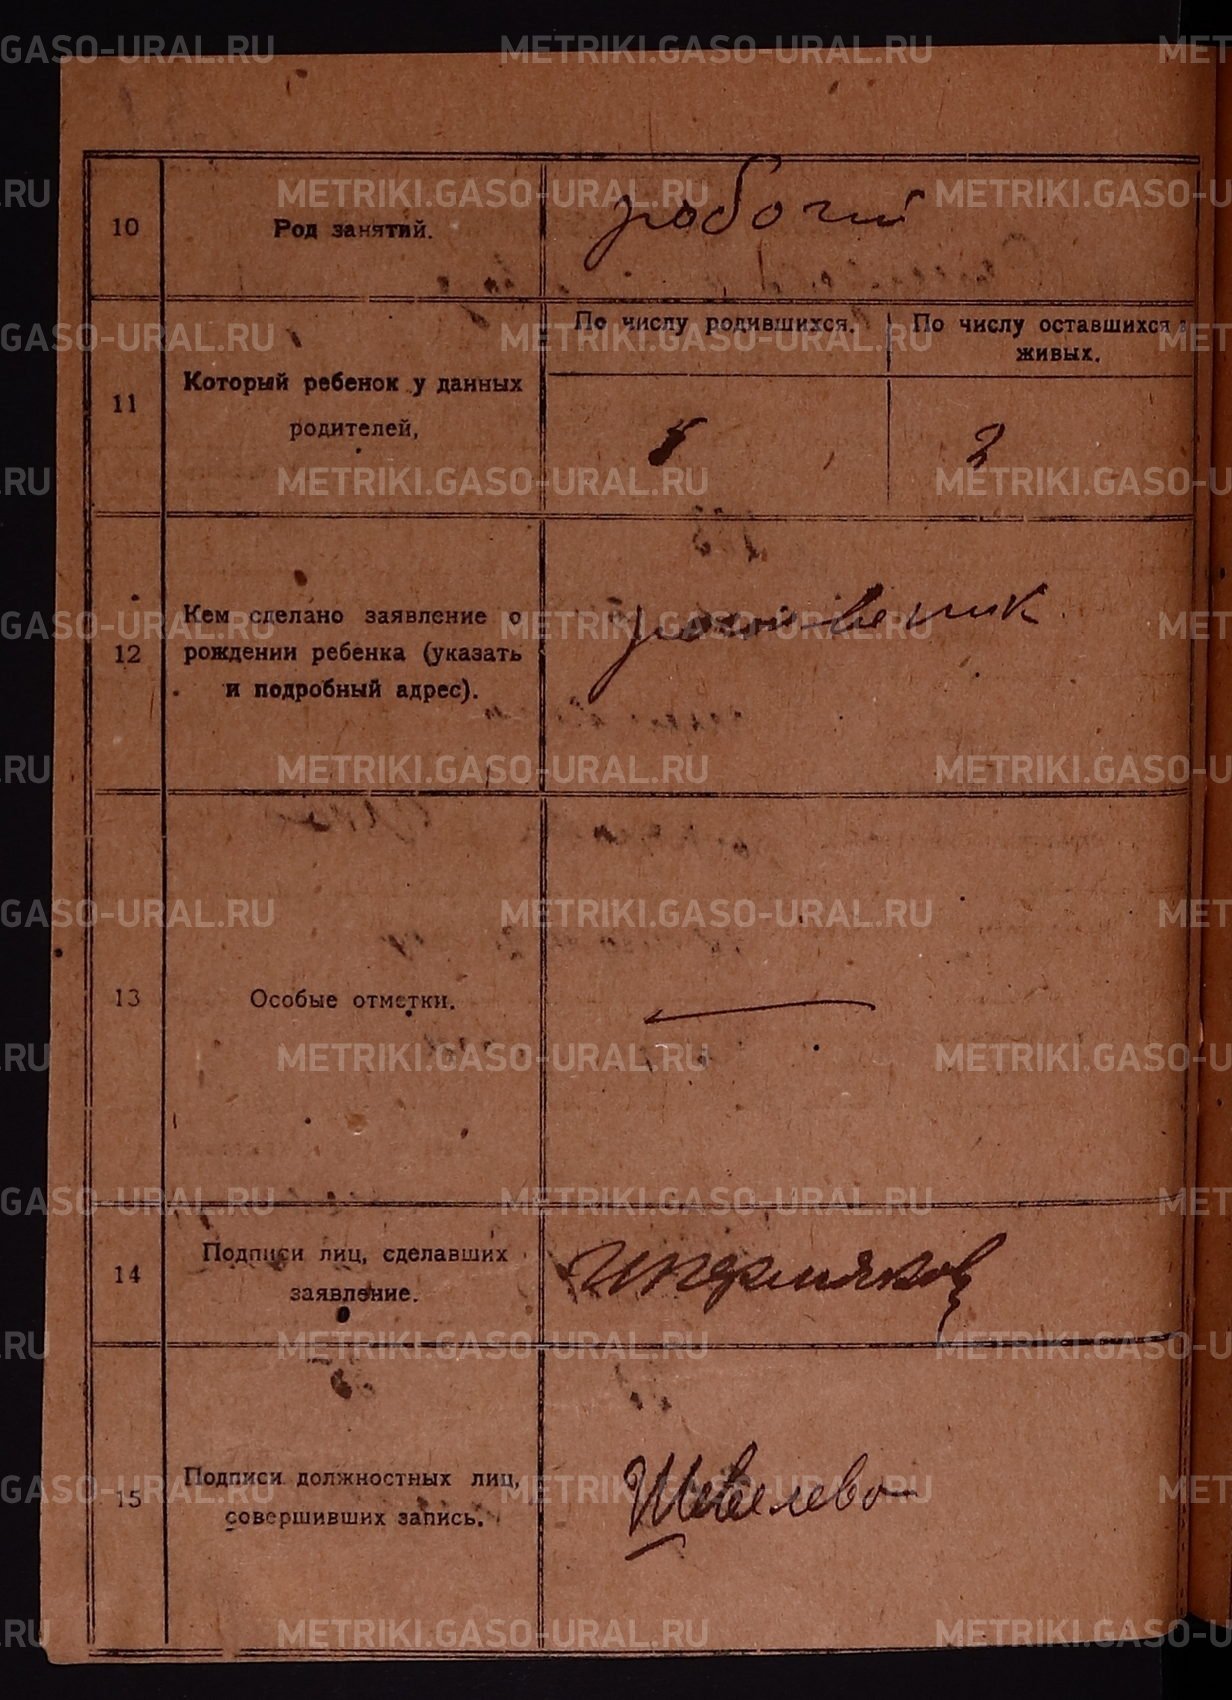 METRIKI.GASO-URAL.RU
10
Род занятий.
рабочий
11
Который ребенок у данных
родителей,
По числу родившихся.
По числу оставшихся в
живых.
2
12
Кем сделано заявление о
рождении ребенка (указать
и подробный адрес).
13
Особые отметки.
14
Подписи лиц, сделавших
заявление.
15
Подписи должностных лиц,
совершивших запись.
Шевелева